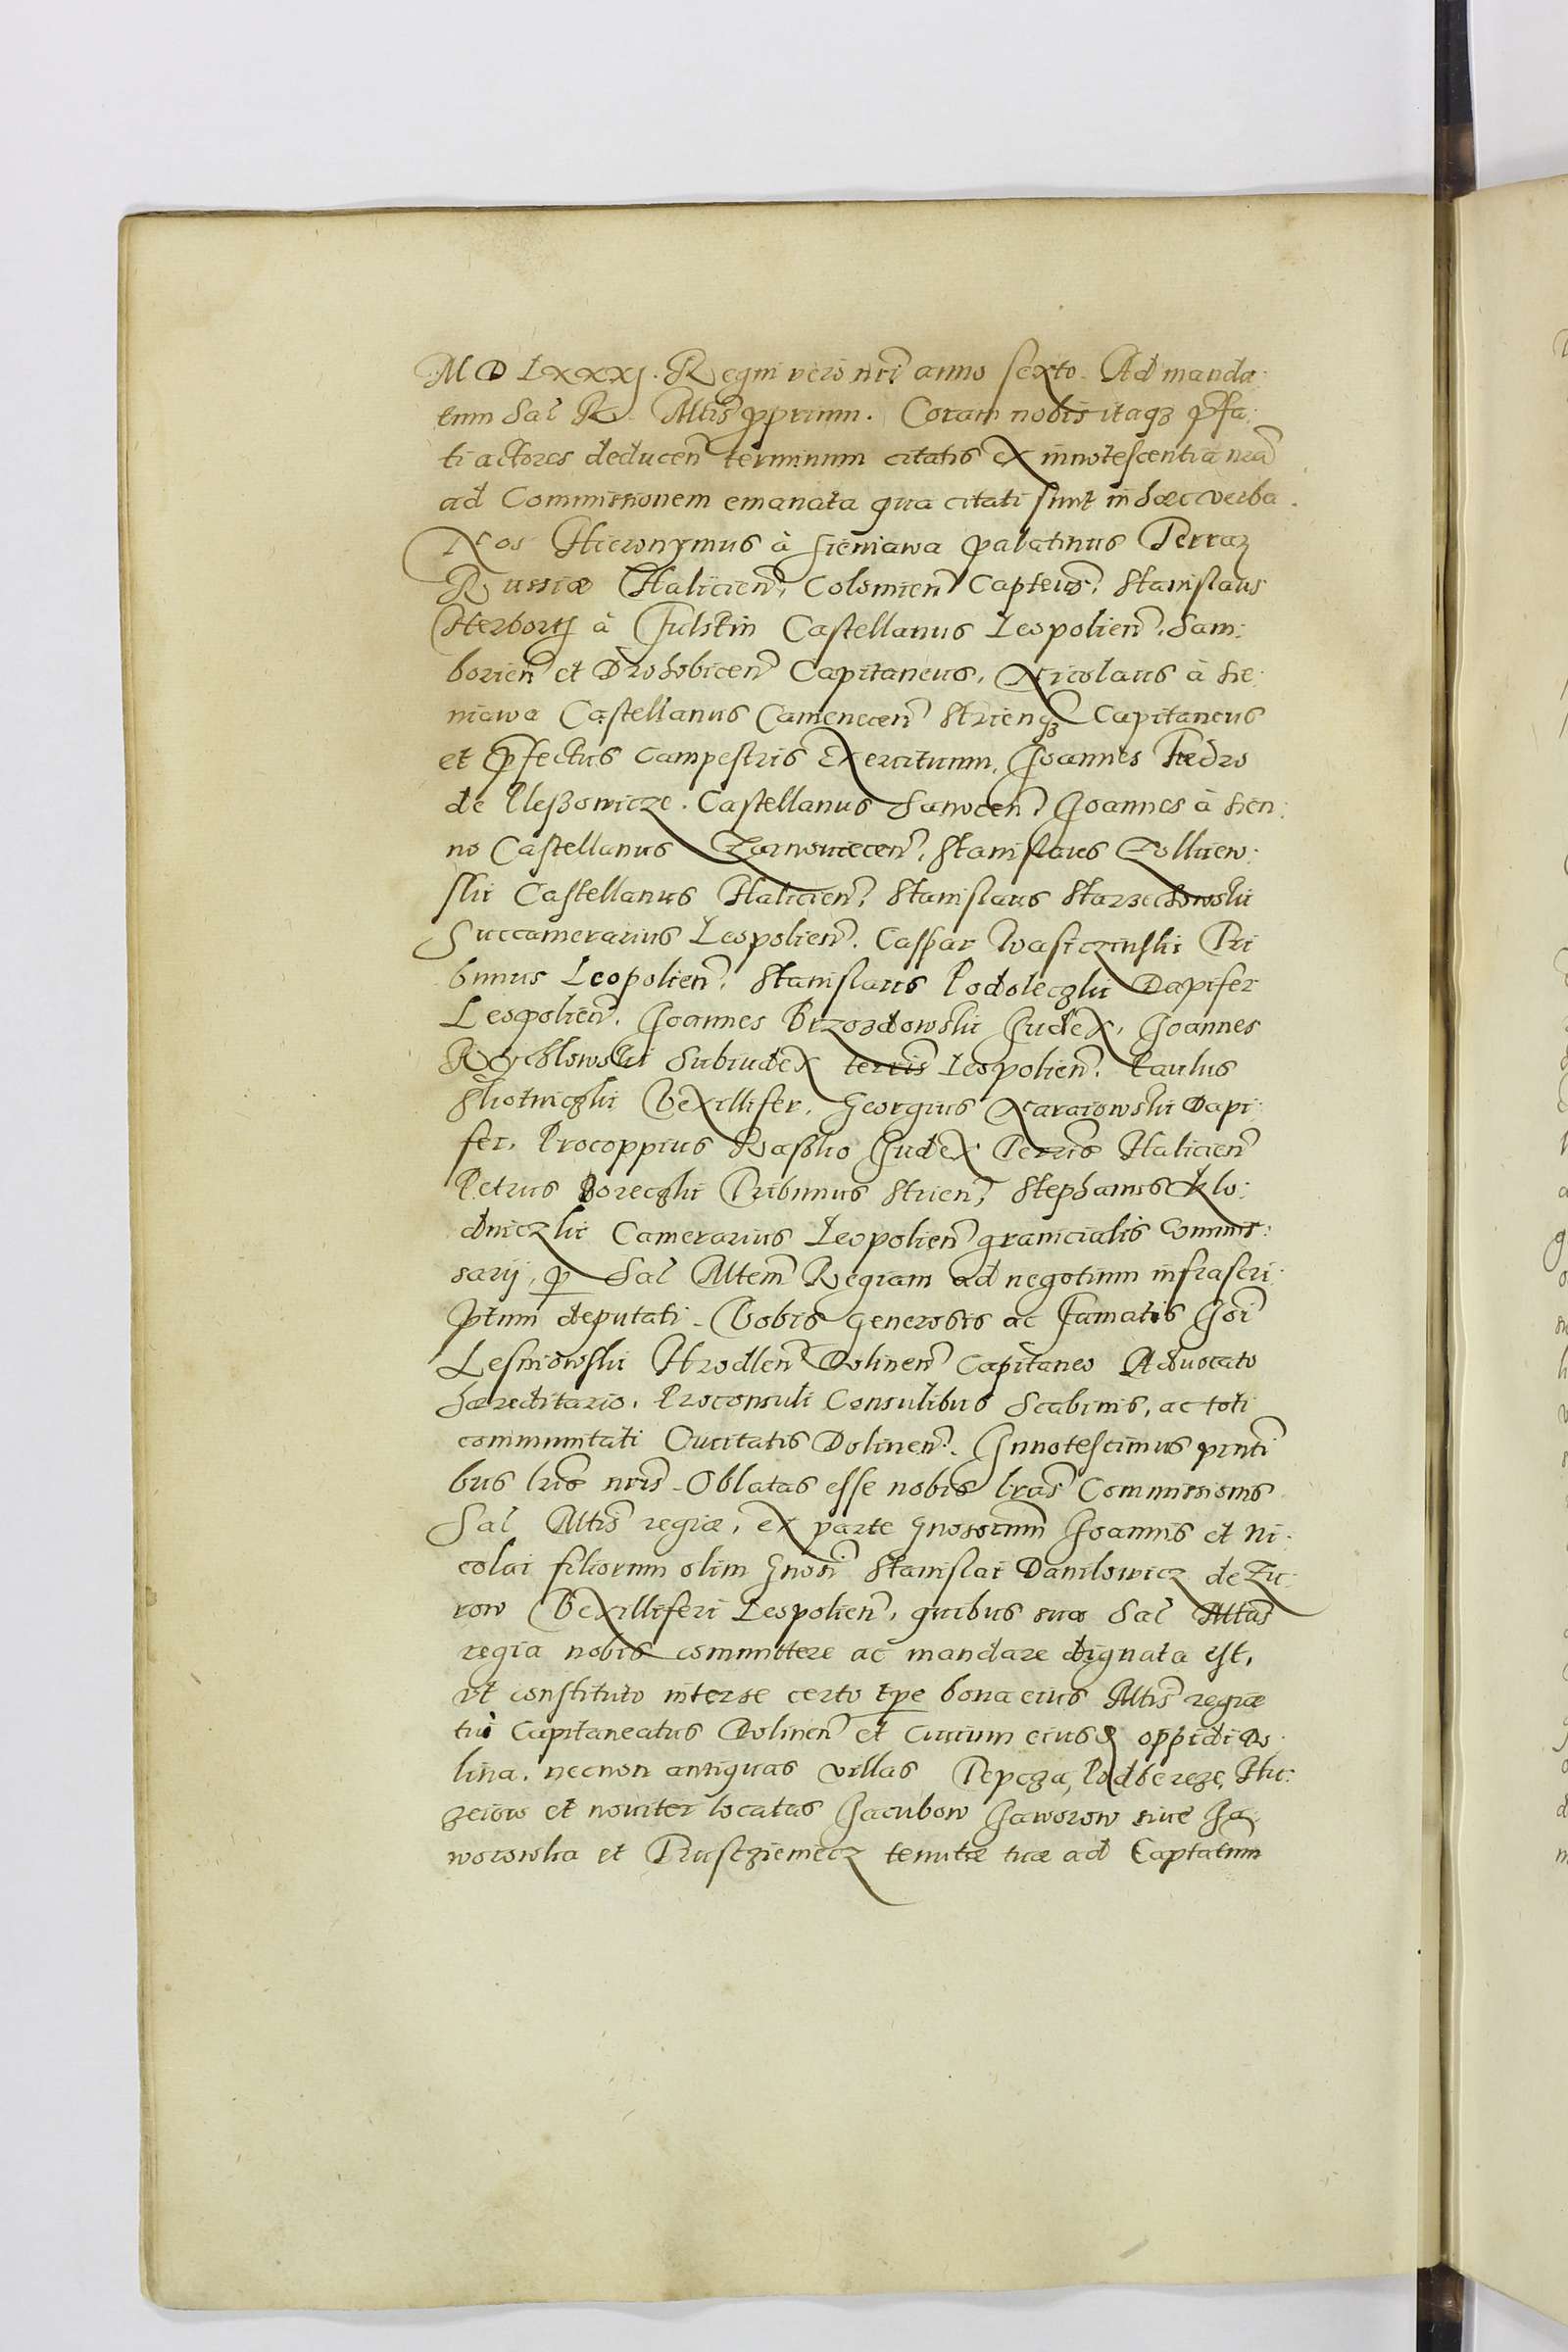 MDLXXXI. Regni vero nri anno sexto. Ad manda:
tum Sac R. Mttis pprium. Coram nobis itaq3 prfa:
ti actores deducen terminum citatis ex innotescentia nra
ad Commissionem emanata qua citati sunt in haec verba.
Nos Hieronymus à Sieniawa palatinus Terraz
Russiæ Halicien, Colomien Capteus. Stanislaus
Herbortj à Fulstin Castellanus Leopolien, Sam:
borien et Drohobicen Capitaneus, Nicolaus à Sie:
niawa Castellanus Camenecen Strienq3 Capitaneus
et Prfectus campestris Exercituum, Joannes Fredro
de Pleßowicze. Castellanus Sanocen, Joannes à Sien:
no Castellanus Zarnowiecen, Stanislaus Zolkiew:
ski Castellanus Halicien, Stanislaus Starzechowski
Succamerarius Leopolien. Caspar Wasiczinski Tri
bunus Leopolien, Stanislaus Podoleczki Dapifer
Leopolien, Joannes Brzozdowski Judex, Joannes
Rychlowski Subiudex terris Leopolien. Paulus
Skotniczki Vexillifer, Georgius Naraiowski Dapi:
fer, Procoppius Rasko Judex Terris Halicien
Petrus Boreczki Tribunus Strien, Stephanus Klo:
dniczki Camerarius Leopolien granicialis Commis:
sarij, p Sac Mttem Regiam ad negotium infrascri:
ptum deputati. Vobis Generosis ac Famatis Joi
Lesniowski Hrodlen Dolinen Capitaneo Advocato
hæreditario, Proconsuli Consulibus Scabinis, ac toti
communitati Civitatis Dolinen. Innotescimus pnti
bus lris nris. Oblatas esse nobis lras Commissionis
Sac Mttis regiæ, ex parte Gnosorum Joannis et Ni:
colai filiorum olim Gnosi Stanislai Danilowicz de Zu:
row Vexilliferi Leopolien, quibus sua Sac Mttas
regia nobis committere ac mandare dignata est,
vt constituto inter se certo tpe bona eius Mttis regiæ
tui Capitaneatus Dolinen et civium eiusd oppidi Do:
lina, necnon antiquas villas Tepcza, Podbereze, Hu:
zeiow et noviter locatas Jacubow Jaworow sive Ja:
worowka et Trusczieniecz tenutæ tuæ ad Captatum